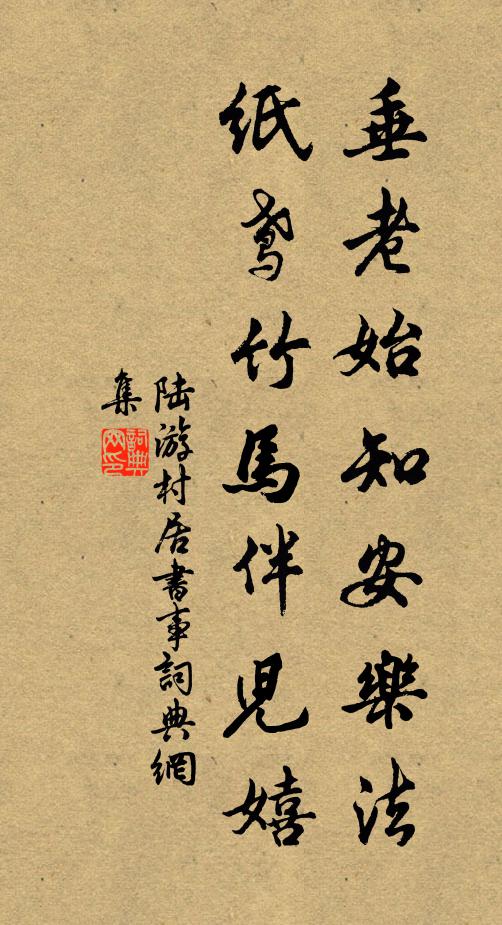 垂老始知安樂法
紙鳶竹馬伴兒嬉
陆游村居書事詞典網
集
詞典网印